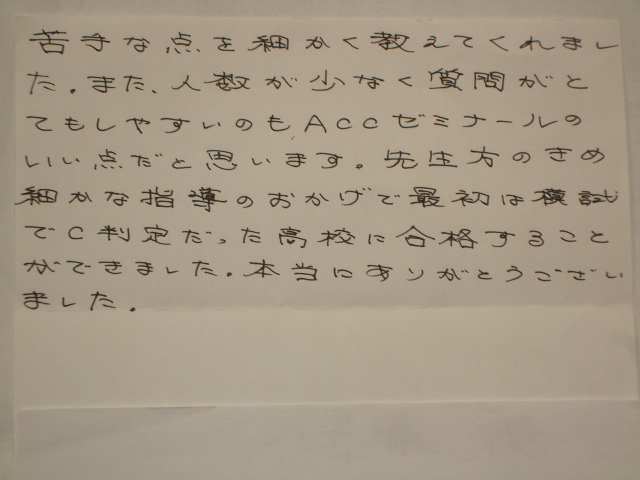 苦手な点を細かく教えてくれまし
た。また、人数が少なく質問がと
てもしやすいのもACCゼミナールの
いい点だと思います。先生方のきめ
細かな指導のおかげで最初は模試
でC判定だった高校に合格すること
ができました。本当にありがとうござい
ました。